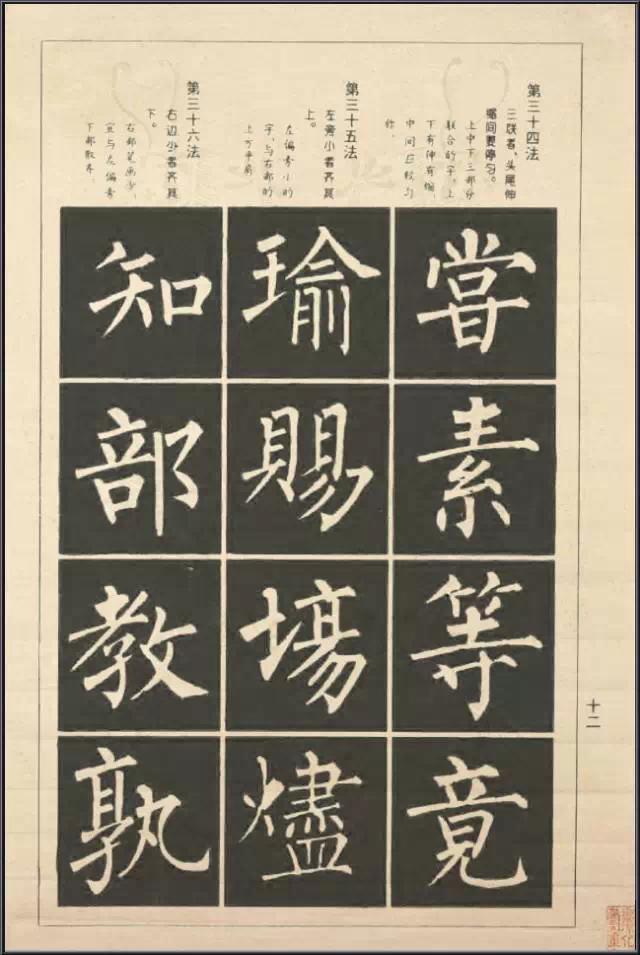 第三十四法
三联者、头尾伸
缩间要停匀。
上中下三部分
联合的字，上
下有伸有缩
中间应较匀
称。
甞
素
等
竟
第三十五法
左旁小者齐其
上。
左偏旁小的
字，与右部的
上方平肩
瑜
賜
場
燼
第三十六法
右边少者齐其
下。
右部笔画少，
宜与左偏旁
下部取齐。
知
部
教
孰
十二